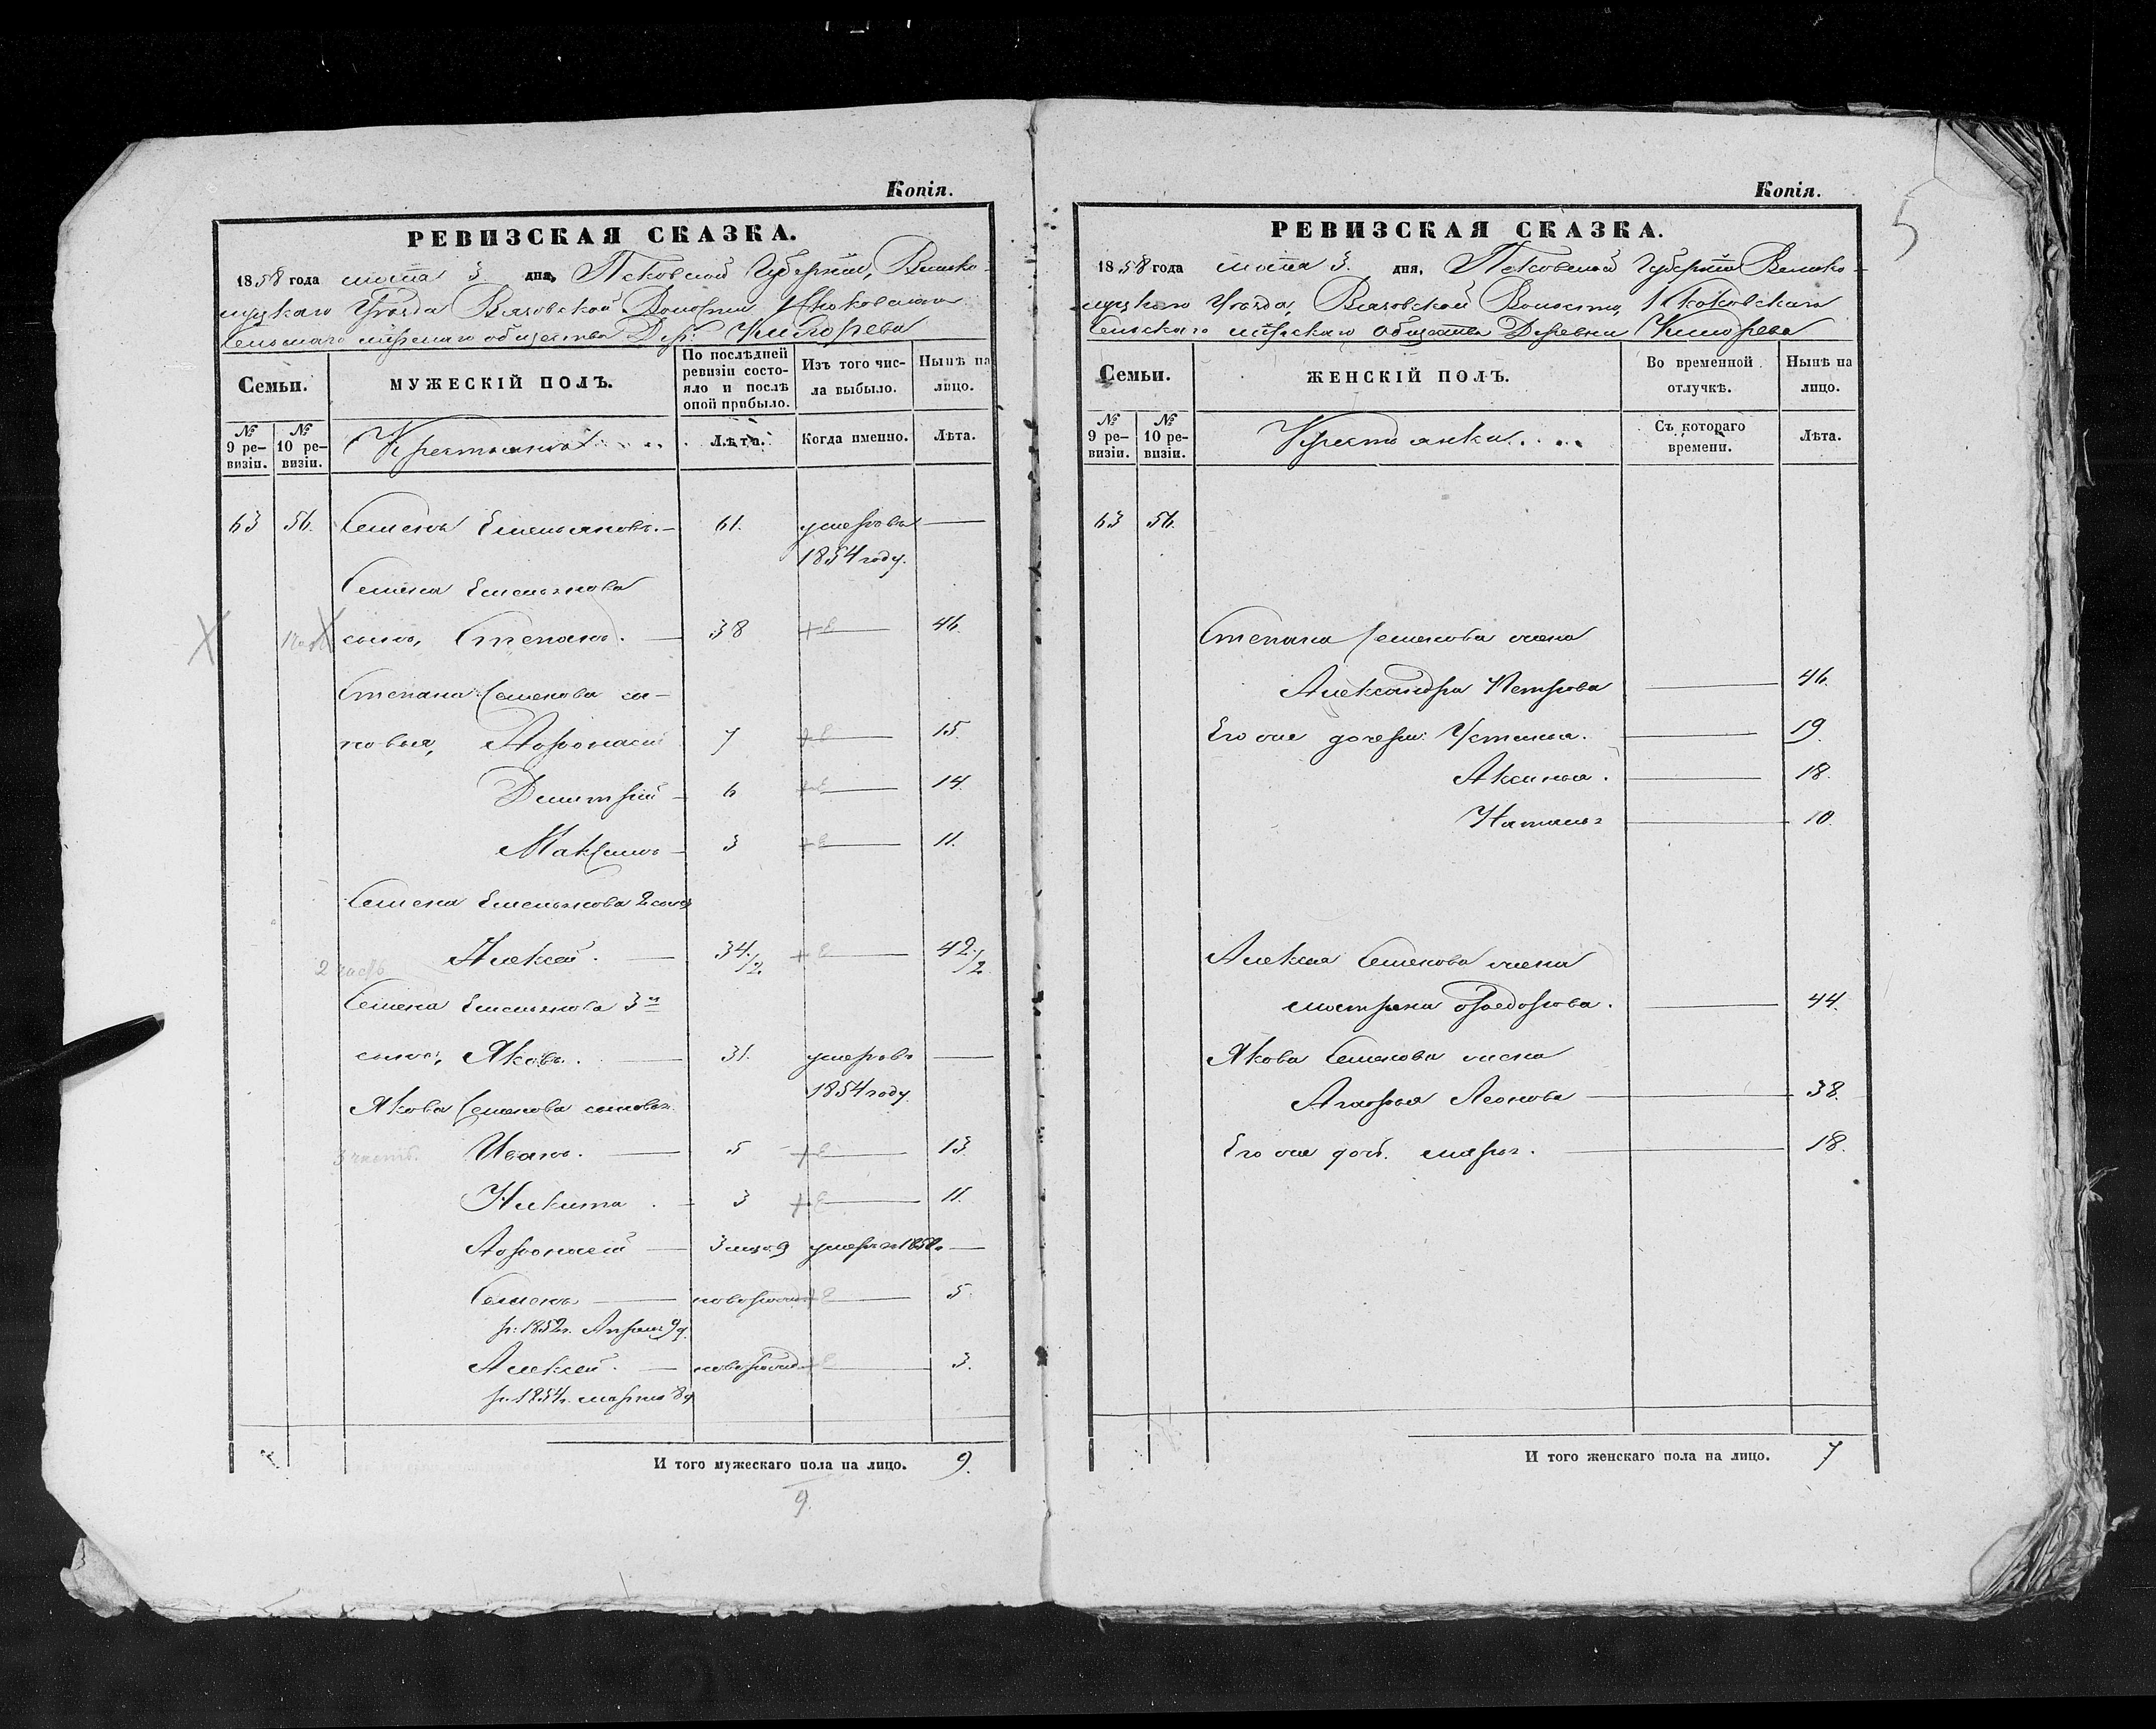 Копія.
РЕВИЗСКАЯ СКАЗКА.
1858 года маія 3 дня, Псковской Губерніи, Велико-
луцкаго Уѣзда Вязовской Волости
Сельскаго мірскаго общества Дер:
Семьи.
МУЖЕСКІЙ ПОЛЪ.
По послѣдней ревизіи состояло и послѣ оной прибыло.
Изъ того числа выбыло.
Нынѣ на лицо.
№ 9 ревизіи.
№ 10 ревизіи.
Крестьяне
Лѣта.
Когда именно.
Лѣта.
63 56. Семенъ Емельяновъ. 61. умеръ въ
1854 году.
Семена Емельянова
сынъ, Степанъ. 38 46.
Степана Семенова сы-
новья, Афонасій 7 15.
Дмитрій 6 14.
Максимъ 3 11.
Семена Емельянова 2 сынъ
Алексей. 34./2. 42./2.
2 часть
Семена Емельянова 3й
сынъ, Яковъ. 31. умеръ въ
1854 году.
Якова Семенова сыновья
3 часть. Иванъ. 5 13.
Никита. 3 11.
Афонасій 3 умеръ
Семенъ новорожд 5.
р: 1852г. Апреля 9 д.
Алексей. новорожд 3.
р. 1854г. марта 8 д
И того мужескаго пола на лицо. 9.
9.
Копія.
5
РЕВИЗСКАЯ СКАЗКА.
1858 года маія 3. дня, Псковской Губерніи Велико-
луцкаго Уѣзда, Вязовской Волости,
Сельскаго мірскаго общества Деревни
Семьи.
ЖЕНСКІЙ ПОЛЪ.
Во временной отлучкѣ.
Нынѣ на лицо.
№ 9 ревизіи.
№ 10 ревизіи.
Крестьянки
Съ котораго времени.
Лѣта.
63 56.
Степана Семенова жена
Александра Петрова 46.
Его же дочери: Устинья. 19.
Аксинья. 18.
Наталья 10.
Алексея Семенова жена
Матрена Федорова. 44.
Якова Семенова жена
Агафья Леонова 38.
Его же доч. Марья. 18.
И того женскаго пола на лицо. 7